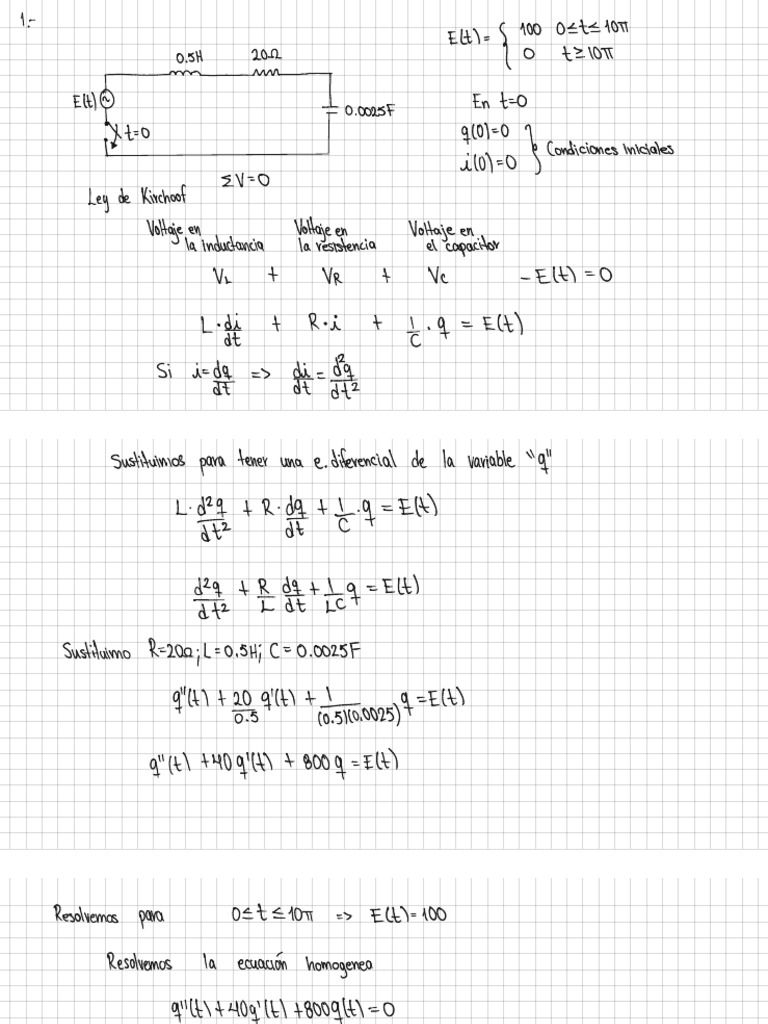 1.-
0.5H 20Ω
E(t)
t=0
0.0025F
E(t)= { 100 0≤t≤10π
0 t≥10π
En t=0
q(0)=0
i(0)=0 } Condiciones iniciales
ΣV=0
Ley de Kirchoof
Voltaje en la inductancia Voltaje en la resistencia Voltaje en el capacitor
V_L + V_R + V_C - E(t) = 0
L·di/dt + R·i + 1/C·q = E(t)
Si i=dq/dt => di/dt = d²q/dt²
Sustituimos para tener una e.diferencial de la variable "q"
L·d²q/dt² + R·dq/dt + 1/C·q = E(t)
d²q/dt² + R/L dq/dt + 1/LC q = E(t)
Sustituimo R=20Ω; L=0.5H; C=0.0025F
q''(t) + 20/0.5 q'(t) + 1/(0.5)(0.0025) q = E(t)
q''(t) + 40q'(t) + 800q = E(t)
Resolvemos para 0≤t≤10π => E(t)=100
Resolvemos la ecuación homogenea
q''(t)+40q'(t)+800q(t)=0